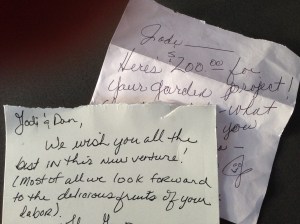 Jodi
Here's $200.00 for
your garden project!
what
you
Jodi & Dan,
We wish you all the
best in this new venture!
(Most of all we look forward
to the delicious fruits of your
labor).